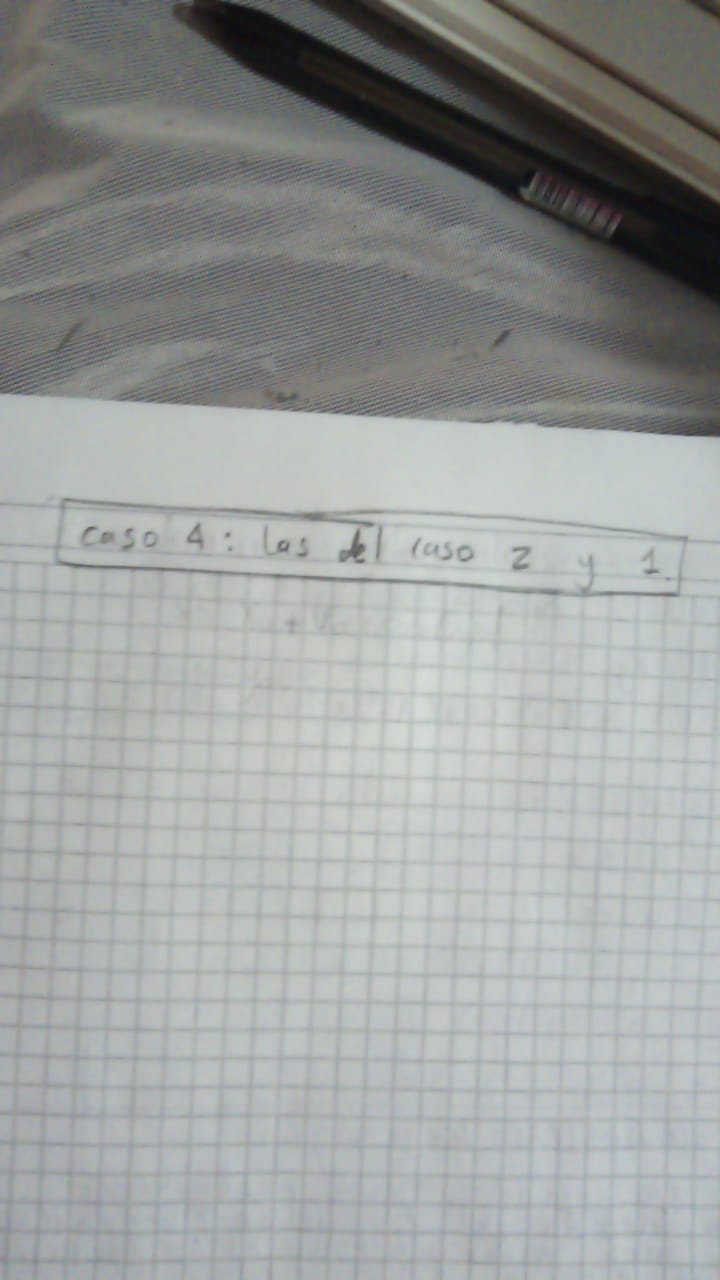 caso 4: las del caso 2 y 1.